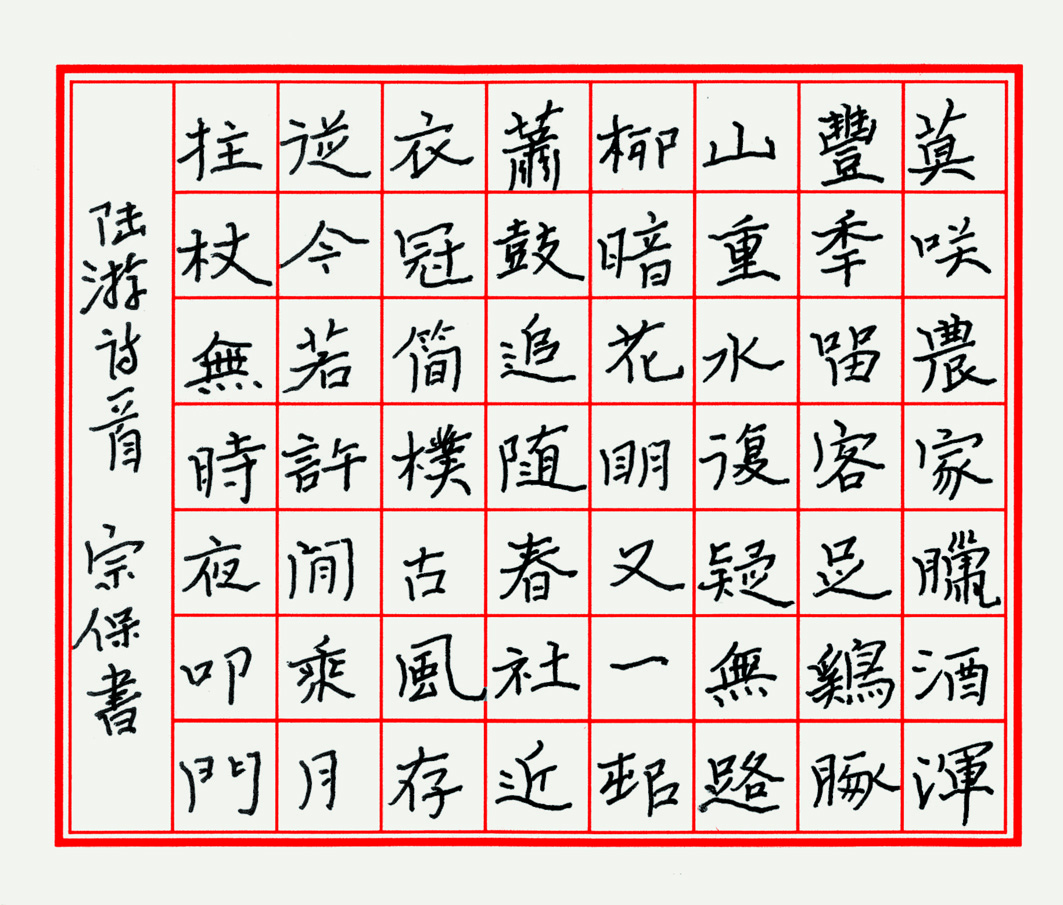 莫咲農家臘酒渾
豐秊留客足鷄豚
山重水復疑無路
柳暗花明又一邨
蕭鼓追随春社近
衣冠簡樸古風存
從今若許閒乘月
拄杖無時夜叩門
陆游诗一首 宗保書